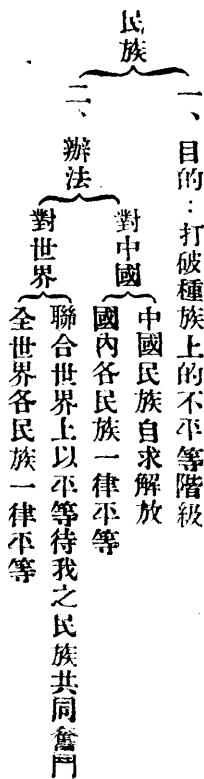 民族
一、目的：打破種族上的不平等階級
二、辦法
對中國
中國民族自求解放
國內各民族一律平等
對世界
聯合世界上以平等待我之民族共同奮鬥
全世界各民族一律平等